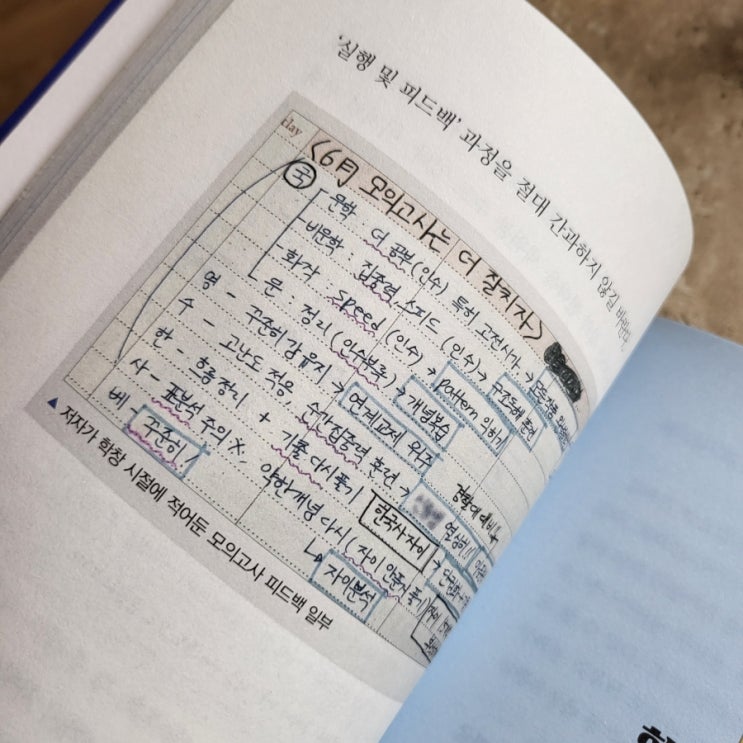 '실행 및 피드백' 과정을 절대 간과하지 않길 바란다.
day
<6月 모의고사는 더 잘치자>
국 문학 : 더 공부 (인수) 특히 고전시가 →
비문학 : 집중력, 스피드 (인수) → 구조독해 훈련
화작 : speed (인수) → pattern 익히기
문 : 정리 (인수부록) → 개념복습
영 - 꾸준히 감 유지 → 연계교재 위주
수 - 고난도 적응, 수가집중력 훈련 →
한 - 흐름 정리 + 기출 다시 풀기 한국사자이
사 - 표분석 주의 X, 약한개념 다시 (자이 안푼거 풀기)
↳ 자이분석
베 - 꾸준히!
▲ 저자가 학창 시절에 적어둔 모의고사 피드백 일부